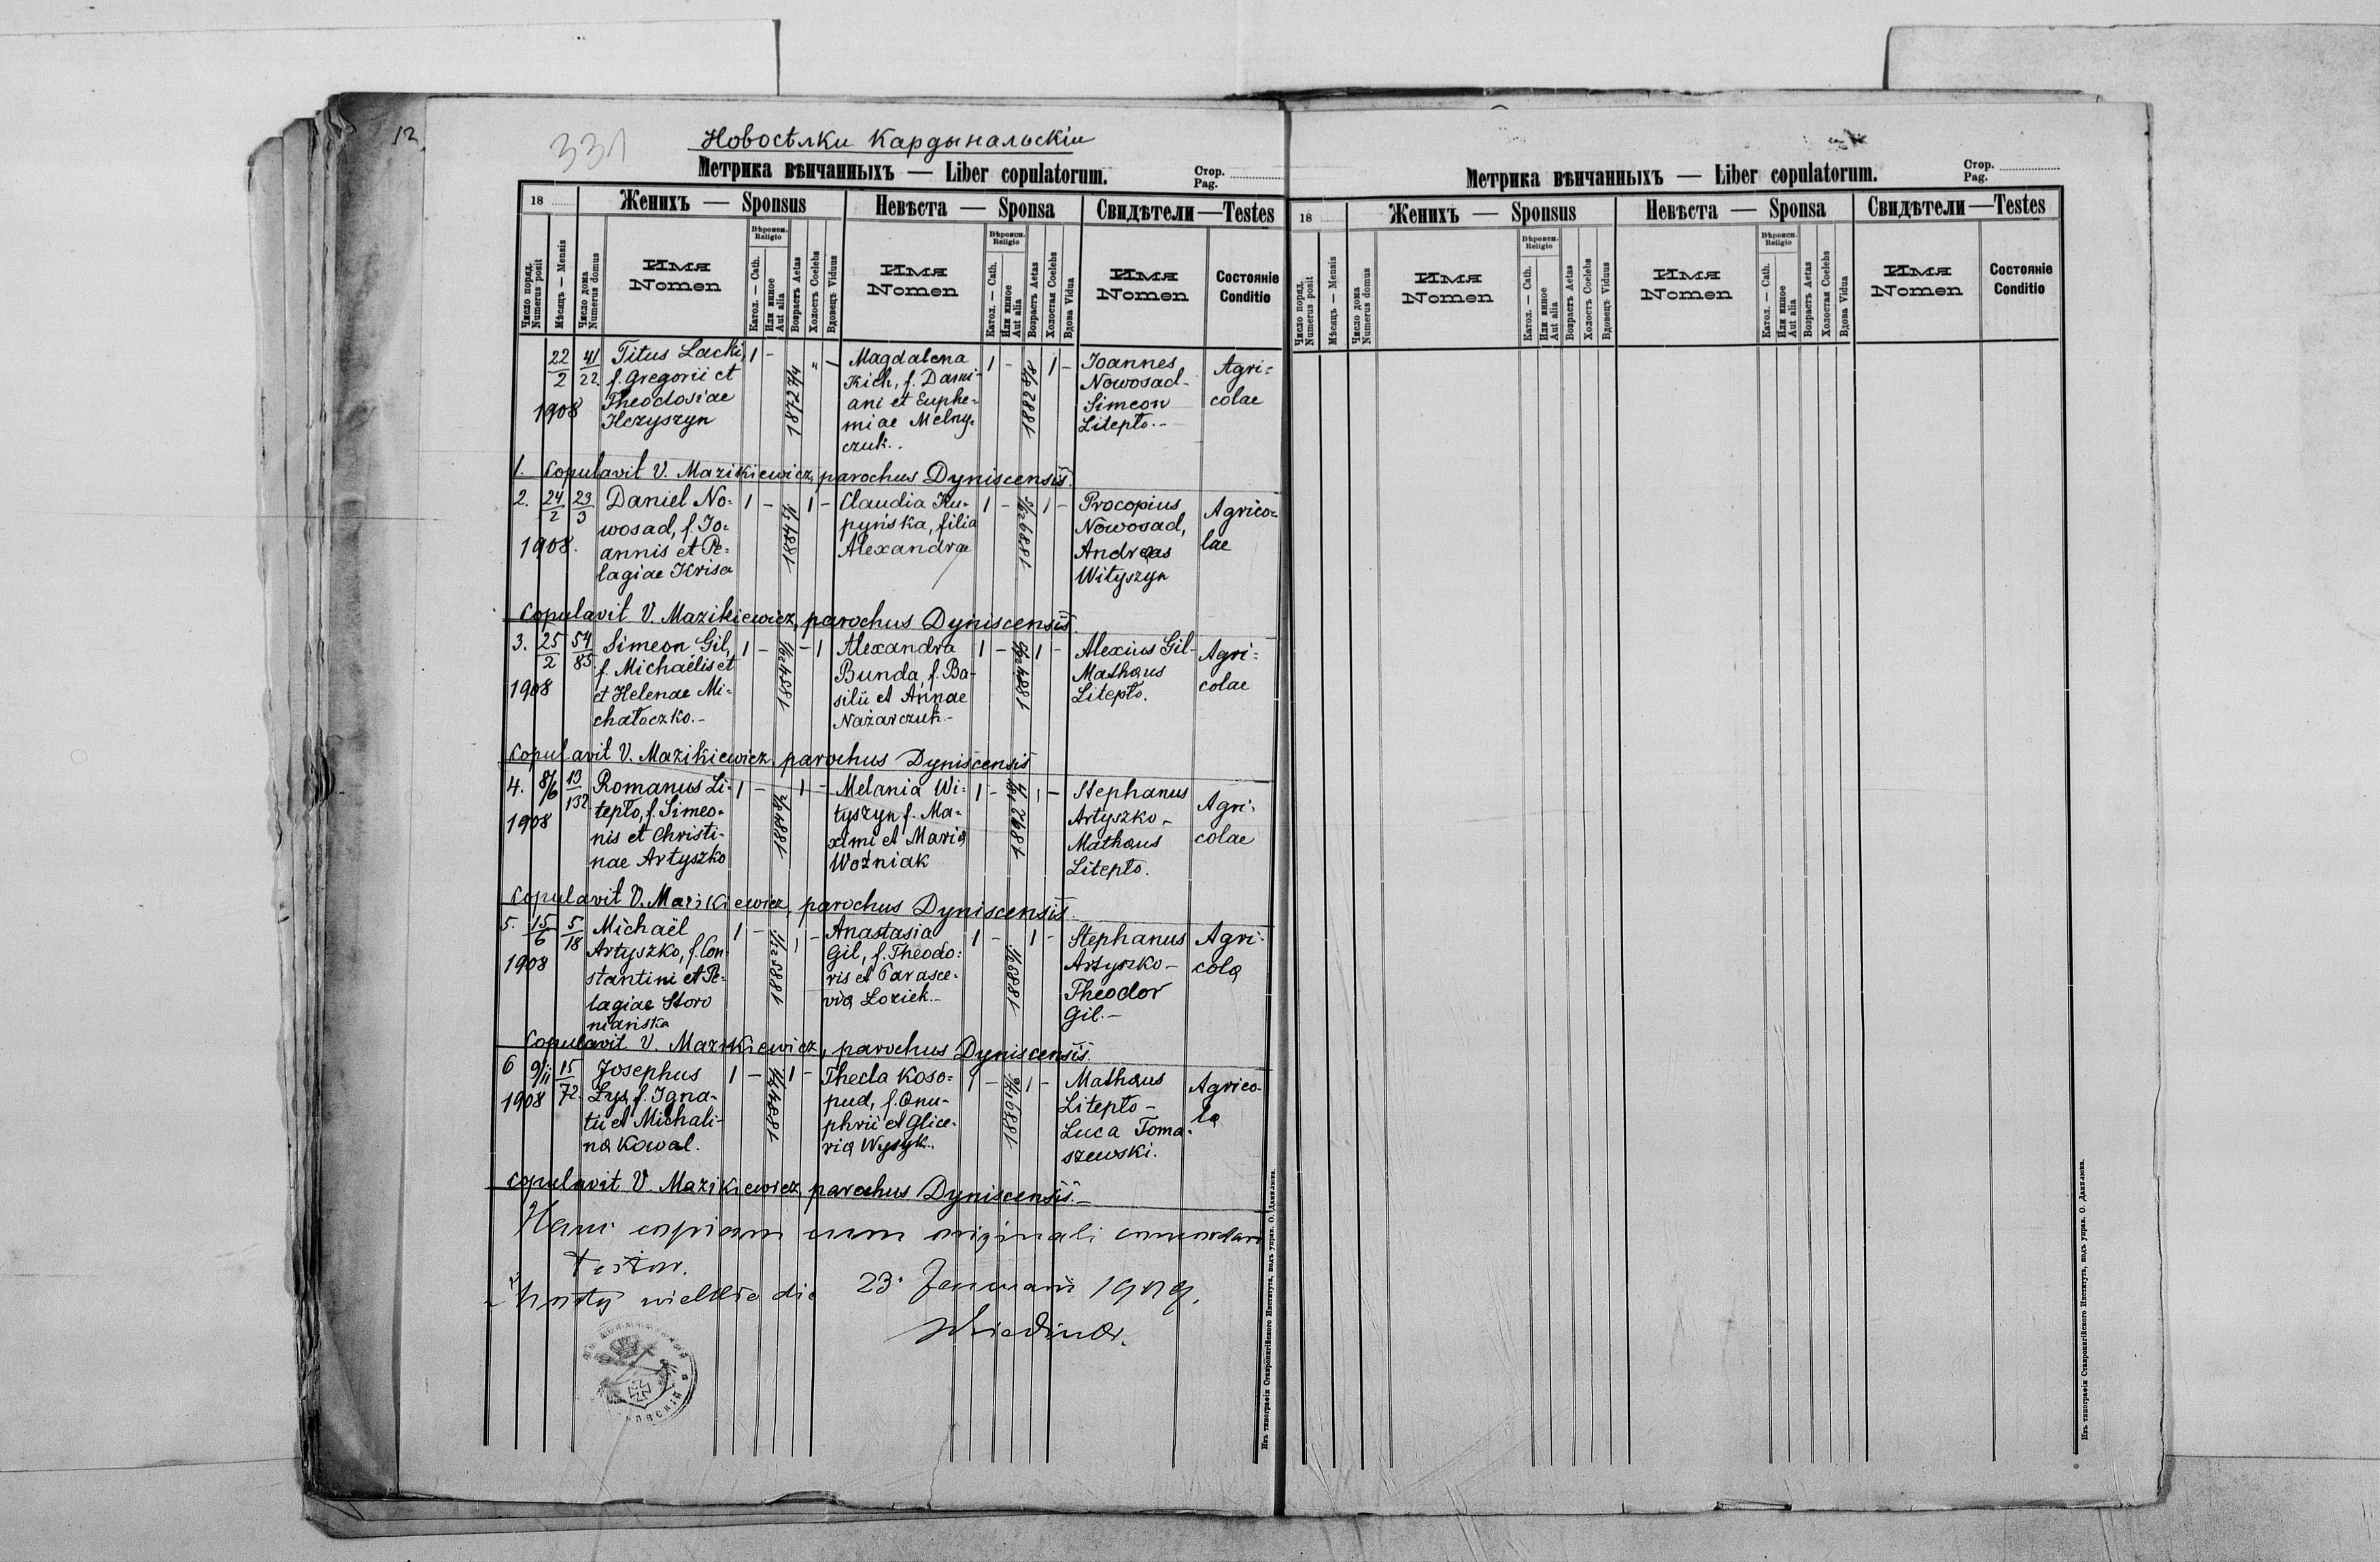 12.
331
Новосѣлки Кардынальскіи
Метрика вѣнчанныхъ — Liber copulatorum.
Стор.
Pag.
18
Женихъ — Sponsus
Невѣста — Sponsa
Свидѣтели — Testes
Число поряд.
Numerus posit
Мѣсяцъ — Mensis
Число дома
Numerus domus
Имя
Nomen
Вѣроисп.
Religio
Катол. — Cath.
Или инное
Aut alia
Возрастъ Aetas
Холостъ Coelebs
Вдовецъ Viduus
Имя
Nomen
Вѣроисп.
Religio
Катол. — Cath.
Или инное
Aut alia
Возрастъ Aetas
Холостая Coelebs
Вдова Vidua
Имя
Nomen
Состояніе
Conditio
22/2 1908
41/22
Titus Lacki,
f. Gregorii et
Theodosiae
Hczyszyn
1 -
1872 7/4
" 1
Magdalena
Kich, f. Dami-
ani et Euphe=
miae Melny=
czuk.-
1 -
1882 8/8
1 -
Joannes
Nowosad-
Simeon
Litepło.-
Agri=
colae
1. Copulavit V. Mazikiewicz, parochus Dyniscensis.
2. 24/2 1908.
23/3
Daniel No=
wosad, f. Jo=
annis et Pe=
lagiae Krisa
1 -
1884
1 -
Claudia Ku-
pyńska, filia
Alexandrae
1 -
1889
1 -
Procopius
Nowosad,
Andreas
Wityszyn
Agrico=
lae
Copulavit V. Mazikiewicz, parochus Dyniscensis.
3. 25/2 1908
54/85
Simeon Gil,
f. Michaëlis et
et Helenae Mi=
chałoczko.-
1 -
1854
- 1
Alexandra
Bunda, f. Ba-
silii et Annae
Nazarczuk.-
1 -
1884
1 -
Alexius Gil-
Mathæus
Litepło.
Agri=
colae
Copulavit V. Mazikiewicz, parochus Dyniscensis
4. 8/6 1908
13/132
Romanus Li-
tepło, f. Simeo=
nis et Christi-
nae Artyszko
1 -
1884
1 -
Melania Wi=
tyszyn f. Ma=
ximi et Mariæ
Woźniak
1 -
1 -
Stephanus
Artyszko-
Mathæus
Litepło.
Agri-
colae
Copulavit V. Mazikiewicz, parochus Dyniscensis.
5. 15/6 1908
5/18
Michaël
Artyszko, f. Con
stantini et Pe-
lagiae Storo
niańska
1 -
1885
1 -
Anastasia
Gil, f. Theodo=
ris et Parasce-
viæ Loziek.-
1 -
1888
1 -
Stephanus
Artyszko-
Theodor
Gil.-
Agri-
colæ
Copulavit V. Mazikiewicz, parochus Dyniscensis.
6 9/11 1908
15/72.
Josephus
Łys, f. Igna-
tii et Michali-
næ Kowal.
1 -
1884
1 -
Thecla Koso=
pud, f. Onu-
phrii et Glice-
riæ Wysyk.-
1 -
1889
1 -
Mathæus
Litepło-
Luca Toma-
szewski.
Agrico-
læ
Copulavit V. Mazikiewicz, parochus Dyniscensis.-
Hanc copiam cum originali concordare
testor.
die 23. Januarii 1909.
Изъ типографіи Ставропигійского Института, подъ управ. О. Данилюка.
Метрика вѣнчанныхъ — Liber copulatorum.
Стор.
Pag.
18
Женихъ — Sponsus
Невѣста — Sponsa
Свидѣтели — Testes
Число поряд.
Numerus posit
Мѣсяцъ — Mensis
Число дома
Numerus domus
Имя
Nomen
Вѣроисп.
Religio
Катол. — Cath.
Или инное
Aut alia
Возрастъ Aetas
Холостъ Coelebs
Вдовецъ Viduus
Имя
Nomen
Вѣроисп.
Religio
Катол. — Cath.
Или инное
Aut alia
Возрастъ Aetas
Холостая Coelebs
Вдова Vidua
Имя
Nomen
Состояніе
Conditio
Изъ типографіи Ставропигійского Института, подъ управ. О. Данилюка.